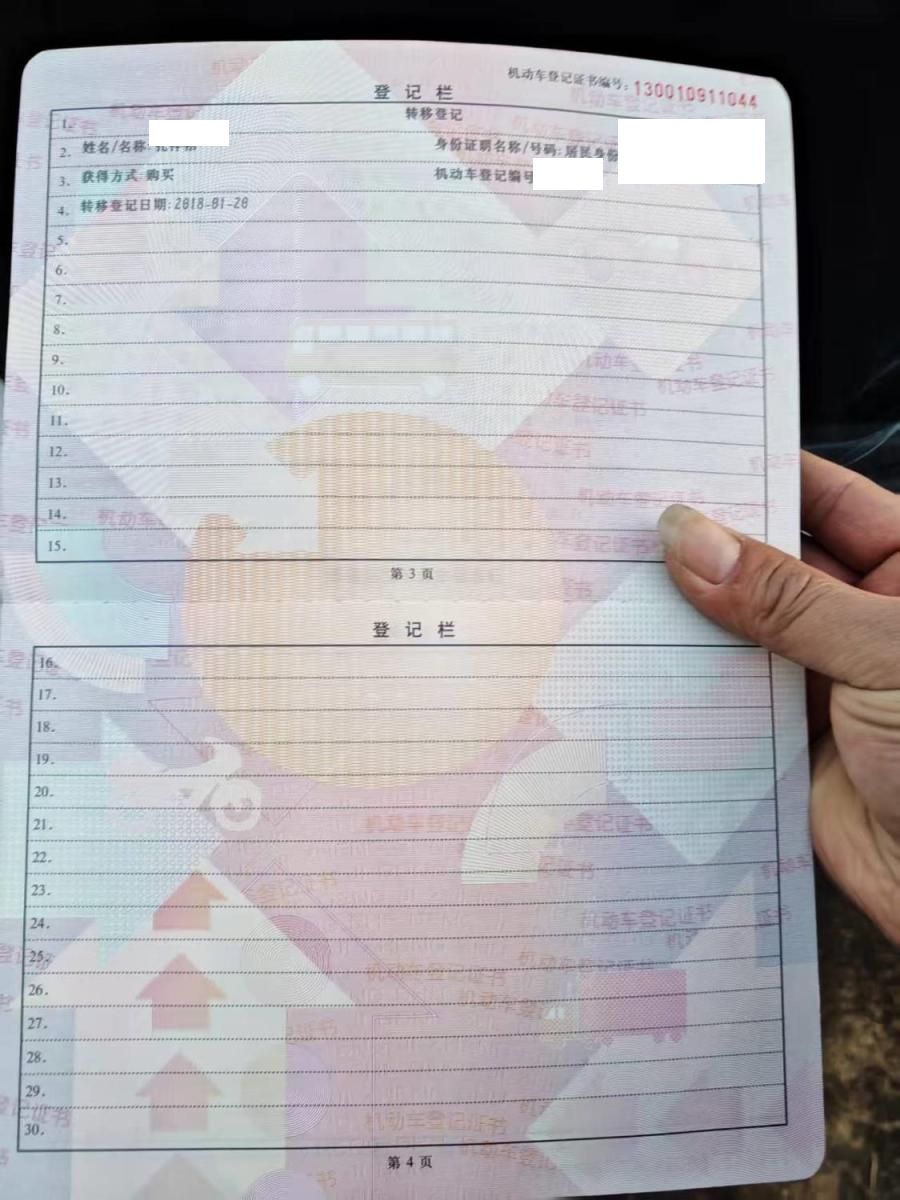 机动车登记证书编号:130010911044
登记栏
1. 转移登记
2. 姓名/名称: 身份证明名称/号码:居民身份
3. 获得方式:购买 机动车登记编号
4. 转移登记日期:2018-01-20
5.
6.
7.
8.
9.
10.
11.
12.
13.
14.
15.
第 3 页
登记栏
16.
17.
18.
19.
20.
21.
22.
23.
24.
25.
26.
27.
28.
29.
30.
第 4 页